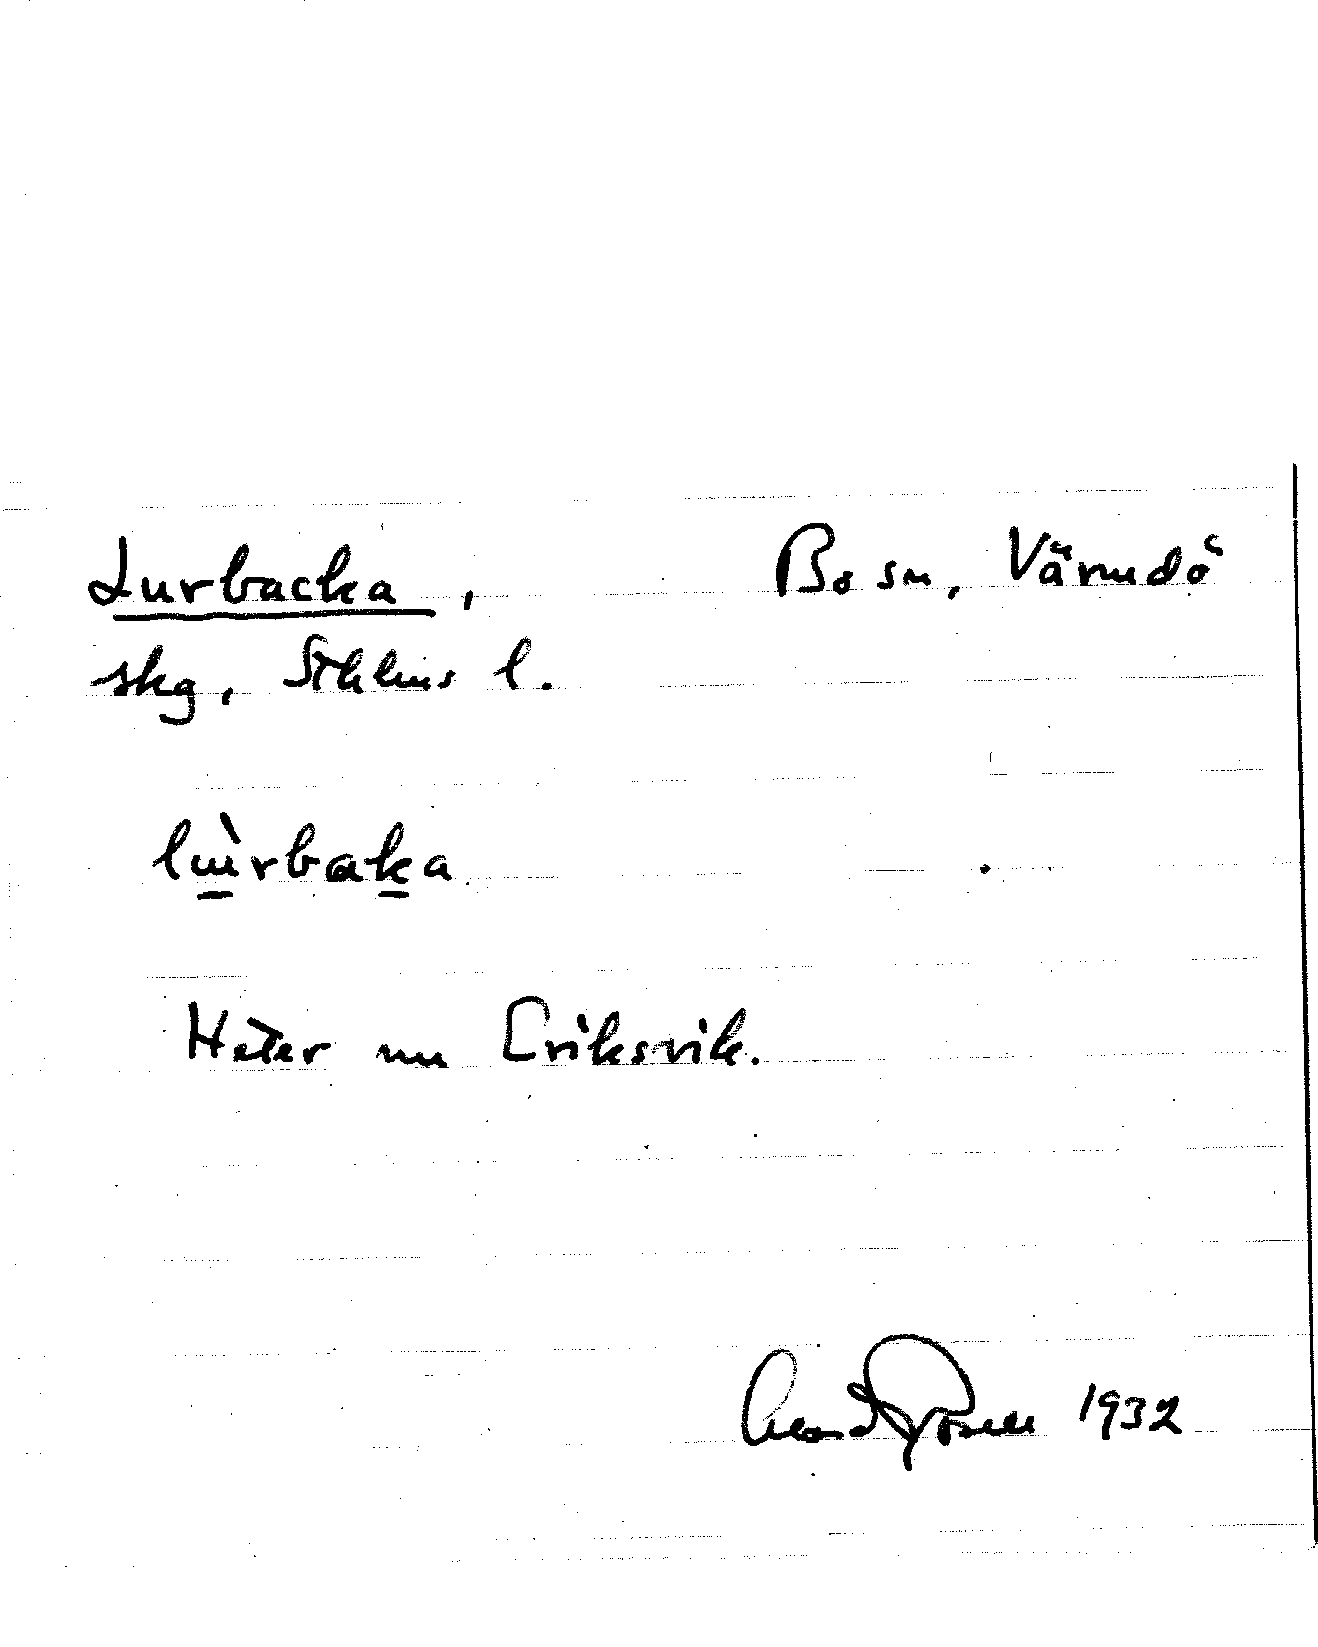 Lurbacka, Bo sn, Värmdö
skg, Sthlms l.
lù̱rbaḵa
Heter nu Eriksvik.
1932